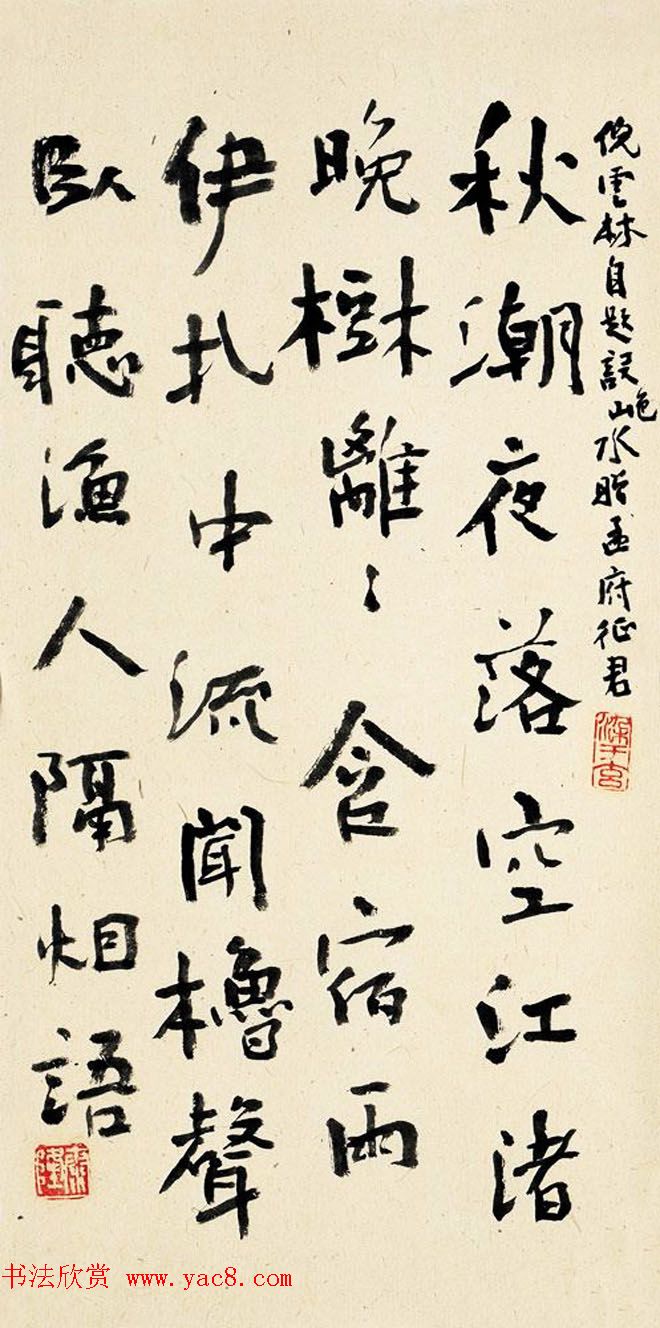 倪雲林自題設色山水府征君
秋潮夜落空江渚
晚樹離〻含宿雨
伊扎中流聞櫓聲
臥聽漁人隔烟語
书法欣赏 www.yac8.com